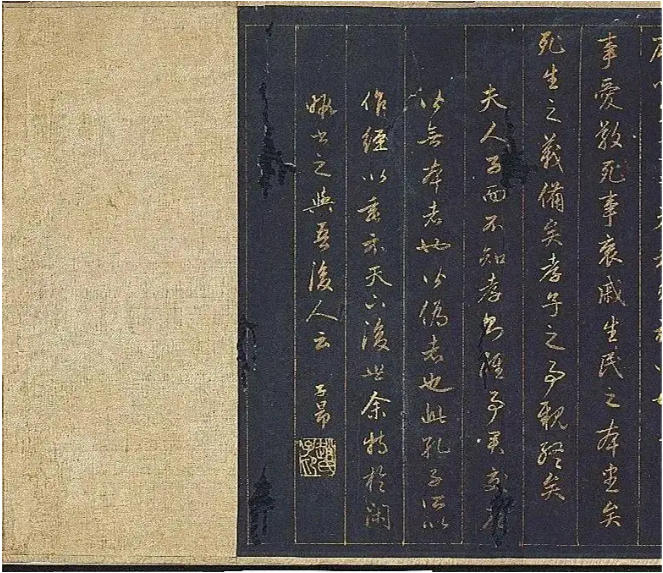 事愛敬死事哀戚生民之本盡矣
死生之義備矣孝子之事親終矣
夫人子而不知孝則雖事君交
無本者也偽者也此孔子所以
作經以垂示天下後世余特於閑
暇書之與吾後人云 子昂
趙氏子昂